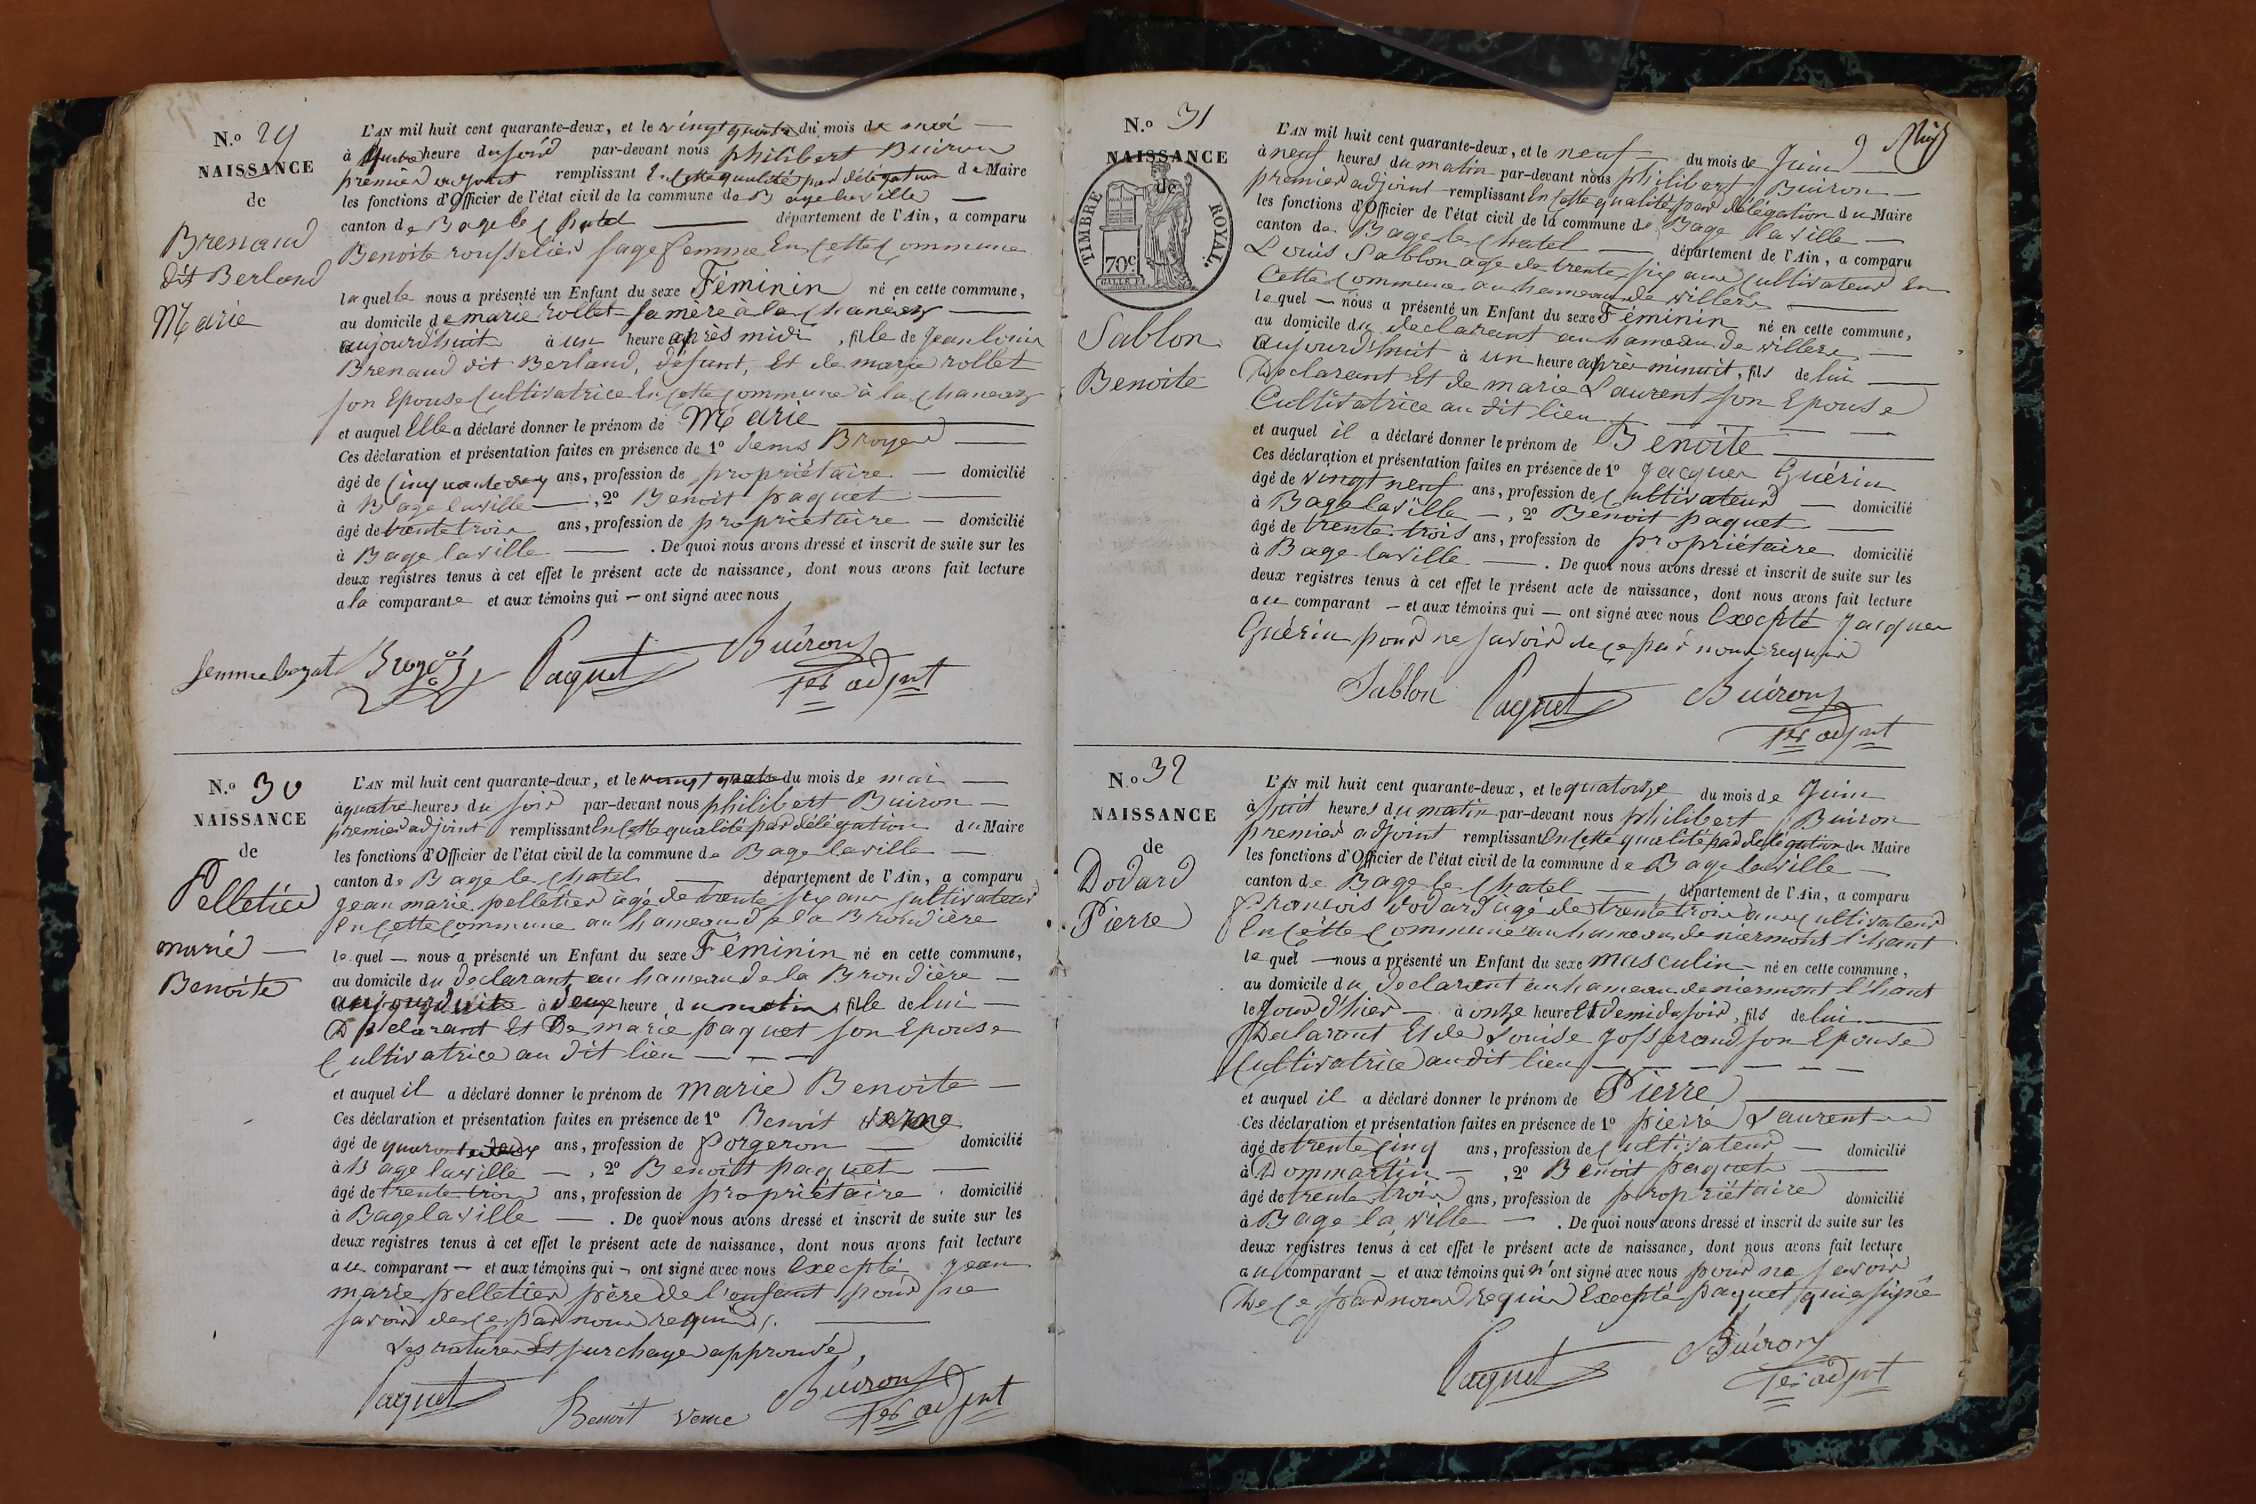 N.o 29
NAISSANCE
de
Brenaud
dit Berland
Marie
L'AN mil huit cent quarante-deux, et le du mois de mai
à quatre heure du soir par-devant nous philibert Buiron
premier adjoint remplissant En cette qualité par délégation de Maire
les fonctions d'Officier de l'état civil de la commune de Bagé la ville
canton de Bagé le Chatel département de l'Ain, a comparu
Benoite rousselier sage femme En cette Commune
laquelle nous a présenté un Enfant du sexe Féminin né en cette commune,
au domicile de marie rollet sa mère à la
aujourd'huit à un heure après midi, fille de Jean louis
Brenaud dit Berland, défunt, Et de marie rollet
son Epouse Cultivatrice En cette commune à la
et auquel Elle a déclaré donner le prénom de Marie
Ces déclaration et présentation faites en présence de 1° denis Broyer
âgé de Cinquante ans, profession de propriétaire domicilié
à Bagé la ville, 2° Benoit paquet
âgé de trente trois ans, profession de propriétaire domicilié
à Bagé la ville. De quoi nous avons dressé et inscrit de suite sur les
deux registres tenus à cet effet le présent acte de naissance, dont nous avons fait lecture
a la comparante et aux témoins qui ont signé avec nous
femme Broyer Paquet Buiron
1er adjnt
N.o 30
NAISSANCE
de
Pelletier
marie
Benoite
L'AN mil huit cent quarante-deux, et le du mois de mai
à quatre heures du soir par-devant nous philibert Buiron
premier adjoint remplissant En cette qualité par délégation du Maire
les fonctions d'Officier de l'état civil de la commune de Bagé la ville
canton de Bagé le Chatel département de l'Ain, a comparu
Jean marie pelletier âgé de trente six ans Cultivateur
En cette Commune au hameau de la Brondière
lequel nous a présenté un Enfant du sexe Féminin né en cette commune,
au domicile du declarant au hameau de la Brondière
à deux heure du matin, fille de lui
Déclarant Et De marie paquet son Epouse
Cultivatrice au dit lieu
et auquel il a déclaré donner le prénom de marie Benoite
Ces déclaration et présentation faites en présence de 1° Benoit verne
âgé de ans, profession de forgeron domicilié
à Bagé la ville, 2° Benoitt paquet
âgé de trente trois ans, profession de propriétaire. domicilié
à Bagé la ville. De quoi nous avons dressé et inscrit de suite sur les
deux registres tenus à cet effet le présent acte de naissance, dont nous avons fait lecture
au comparant et aux témoins qui ont signé avec nous Execpté Jean
marie pelletier père de l'enfant pour ne
savoir de ce par nous requis.
Les rature Et surchage approuvé,
Paquet Benoit verne Buiron
1er adjnt
N.o 31
NAISSANCE
de
TIMBRE ROYAL.
70c
Sablon
Benoite
9
L'AN mil huit cent quarante-deux, et le neuf du mois de Juin
à neuf heures du matin par-devant nous philibert Buiron
premier adjoint remplissant En cette qualité par délégation du Maire
les fonctions d'Officier de l'état civil de la commune de Bagé la ville
canton de Bagé le Chatel département de l'Ain, a comparu
Louis Sablon agé de trente six ans Cultivateur En
Cette Commune au hameau de villers
lequel nous a présenté un Enfant du sexe Féminin né en cette commune,
au domicile du declarant au hameau de villers
aujourd'huit à un heure après minuit, fils de lui
Declarant Et de marie Laurent son Epouse
Cultivatrice au dit lieu
et auquel il a déclaré donner le prénom de Benoite
Ces déclaration et présentation faites en présence de 1° Jacques Guérin
âgé de vingt neuf ans, profession de Cultivateur domicilié
à Bagé la ville, 2° Benoit paquet
âgé de trente trois ans, profession de propriétaire domicilié
à Bagé la ville. De quoi nous avons dressé et inscrit de suite sur les
deux registres tenus à cet effet le présent acte de naissance, dont nous avons fait lecture
au comparant et aux témoins qui ont signé avec nous Execpté Jacques
Guérin pour ne savoir de ce par nous requis
Sablon Paquet Buiron
1er adjnt
N.o 32
NAISSANCE
de
Dodard
Pierre
L'AN mil huit cent quarante-deux, et le quatorze du mois de Juin
à huit heures du matin par-devant nous philibert Buiron
premier adjoint remplissant En cette qualité par délégation du Maire
les fonctions d'Officier de l'état civil de la commune de Bagé la ville
canton de Bagé le Chatel département de l'Ain, a comparu
François dodard agé de trente trois ans Cultivateur
En Cette Commune au hameau de niermont
lequel nous a présenté un Enfant du sexe masculin né en cette commune,
au domicile du Declarant au hameau de niermont
le Jour d'hier à onze heure Et demi du soir, fils de lui
Declarant Et de Louise Josserand son Epouse
Cultivatrice au dit lieu
et auquel il a déclaré donner le prénom de Pierre
Ces déclaration et présentation faites en présence de 1° pierre Laurent
âgé de trente Cinq ans, profession de Cultivateur domicilié
à Dommartin, 2° Benoit paquet
âgé de trente trois ans, profession de propriétaire domicilié
à Bagé la ville. De quoi nous avons dressé et inscrit de suite sur les
deux registres tenus à cet effet le présent acte de naissance, dont nous avons fait lecture
au comparant et aux témoins qui n'ont signé avec nous pour ne savoir
De ce par nous requis Execpté paquet qui a signé
Paquet Buiron
1er adjnt